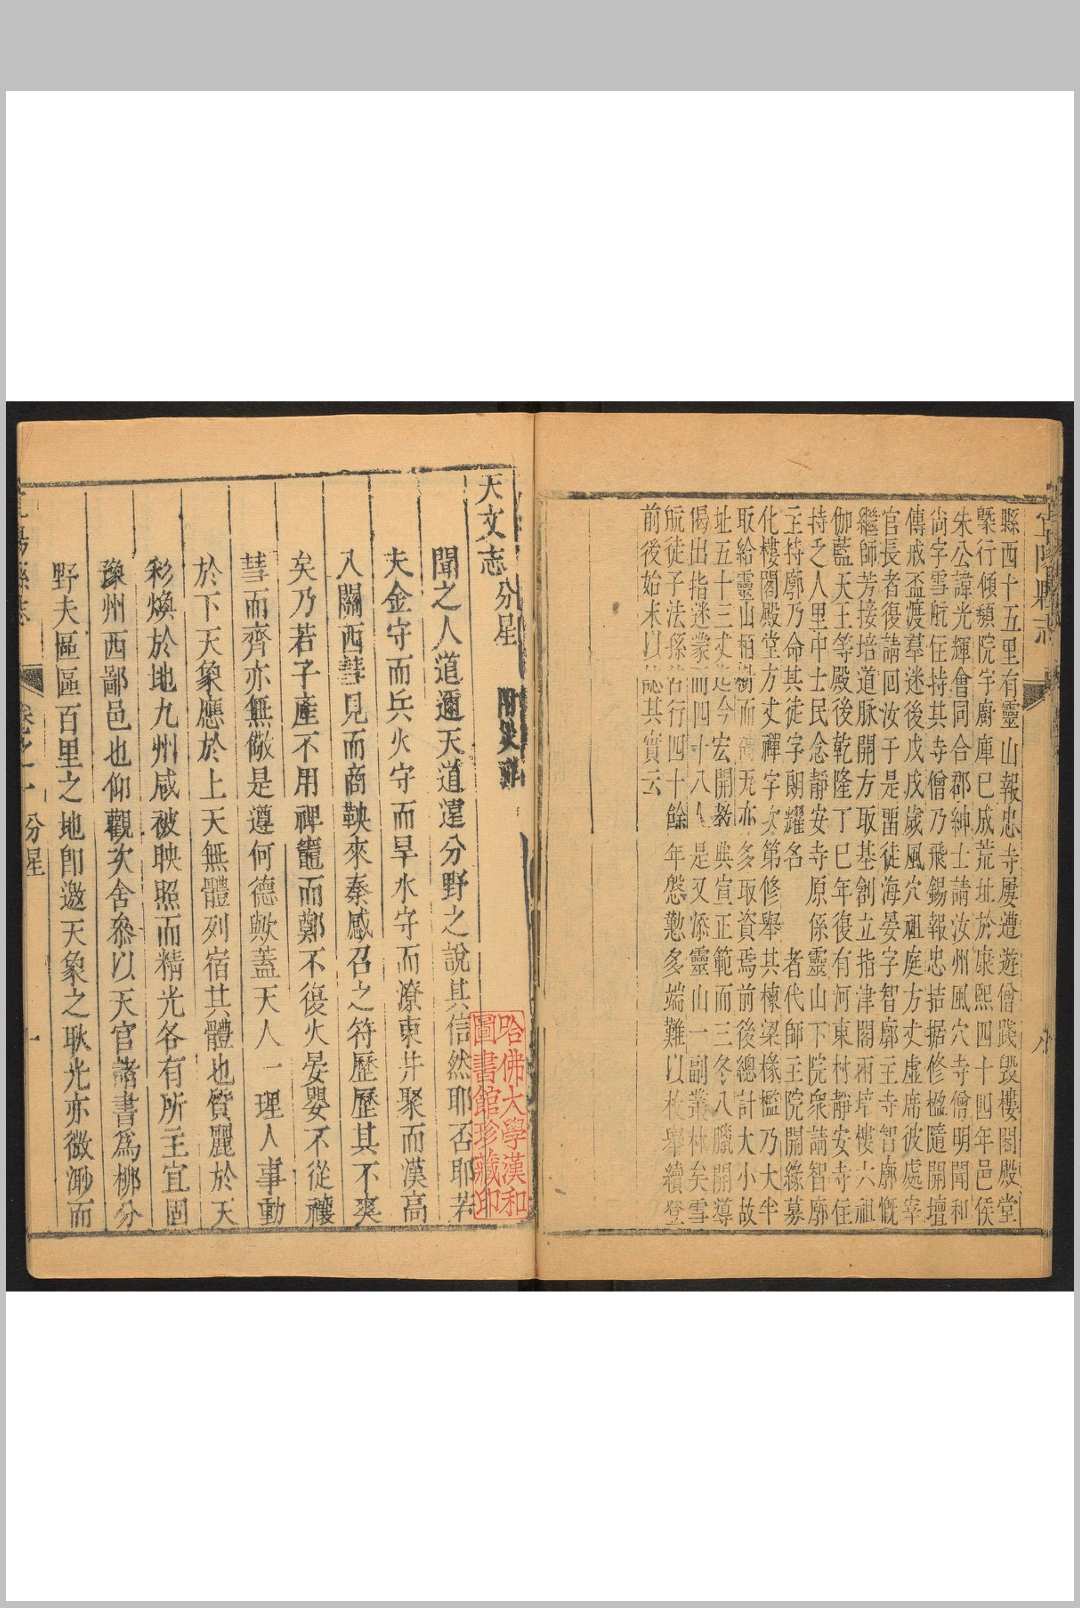 宜陽縣志
八
縣西十五里有靈山報忠寺屢遭遊僧踐毀樓閣殿堂
槩行傾頹院宇廚庫巳成荒址於康熙四十四年邑侯
朱公諱光輝會同合郡紳士請汝州風穴寺僧明聞和
尚字雪航住持其寺僧乃飛錫報忠拮据修楹隨開壇
傳戒盃渡羣迷後戊戌歲風穴祖庭方丈虛席彼處宰
官長者復請囘汝于是畱徒海晏字智廓主寺智廓慨
繼師芳接培道脉開方取基創立指津閣兩埣樓六祖
伽藍天王等殿後乾隆丁巳年復有河東村靜安寺住
持乏人里中士民念靜安寺原係靈山下院衆請智廓
主持廓乃命其徒字朗耀名　　者代師主院開緣募
化樓閣殿堂方丈禪字次第修舉其棟梁椽檻乃大半
取給靈山柏樹而磚瓦亦多取資焉前後總計大小故
址五十三丈迄今宏開敷典宣正範而三冬八臘開導
偈出指迷蒙而四十八人是又添靈山一副叢林矣雪
航徒子法孫苦行四十餘年慇懃多端難以枚舉續登
前後始末以誌其實云
天文志 分星 附災祥
聞之人道邇天道遠分野之說其信然耶否耶若
夫金守而兵火守而旱水守而潦東井聚而漢高
入關西彗見而商鞅來秦感召之符歷歷其不爽
矣乃若子產不用禆竈而鄭不復火晏嬰不從禳
彗而齊亦無儆是遵何德歟蓋天人一理人事動
於下天象應於上天無體列宿其體也質麗於天
彩煥於地九州咸被映照而精光各有所主宜固
豫州西鄙邑也仰觀次舍叅以天官諸書爲柳分
野夫區區百里之地卽邀天象之耿光亦微渺而
哈佛大學漢和
圖書館珍藏印
宜陽縣志
卷之一 分星
一